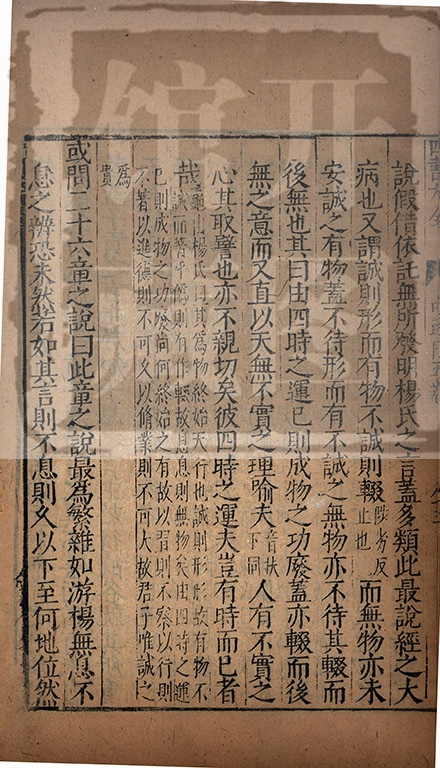 說假借依託無所發明楊氏之言蓋多類此最說經之大
病也又謂誠則形而有物不誠則輟陟劣反止也而無物亦未
安誠之有物蓋不待形而有不誠之無物亦不待其輟而
後無也其曰由四時之運已則成物之功廢蓋亦輟而後
無之意而又直以天無不實之理喻夫音扶下同人有不實之
心其取譬也亦不親切矣彼四時之運夫豈有時而已者
哉龜山楊氏曰其為物終始天行也誠則形形故有物不
誠而著乎偽則有作輟故息息則無物矣由四時之運
已則成物之功廢尚何終始之有故以習則不察以行則
不著以進德則不可久以脩業則不可大故君子唯誠之
為貴
或問二十六章之說曰此章之說最為繁雜如游楊無息不
息之辨恐未然若如其言則不息則久以下至何地位然